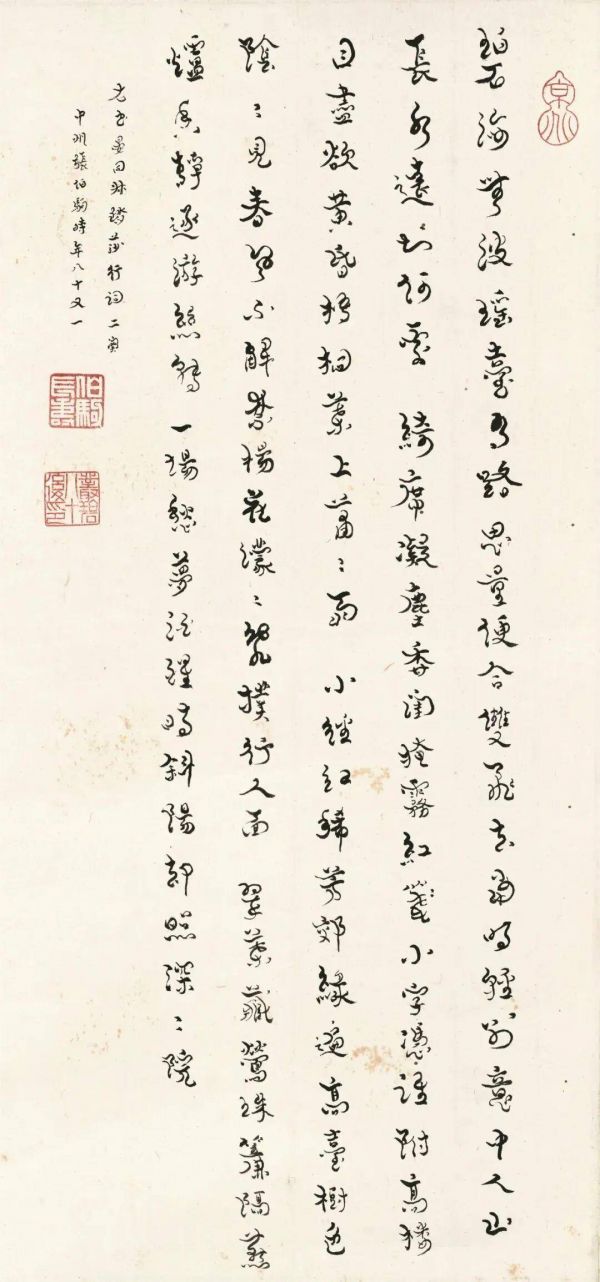 碧海無波瑤臺有路思量便合雙飛去當時輕別意中人山
長水遠知何處 綺席凝塵香閨掩霧紅箋小字憑誰附高樓
目盡欲黃昏梧桐葉上蕭〻雨 小徑紅稀芳郊綠遍高臺樹色
陰〻見春風不解禁楊花濛〻亂撲行人面 翠葉藏鶯珠簾隔燕
爐香靜逐游絲轉一場愁夢酒醒時斜陽卻照深〻院
右書晏同叔踏莎行詞二闋
中州張伯駒時年八十又一
伯駒長壽
叢碧八十後印